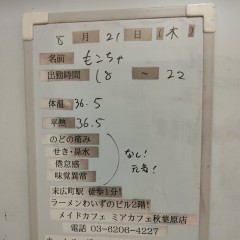 8月21日(木)
名前 もこちゃ
出勤時間 18 ～ 22
体温 36.5
平熱 36.5
のどの痛み
せき・鼻水
倦怠感
味覚異常
なし!
元気!
末広町駅 徒歩1分!
ラーメンわいずのビル2階!
メイドカフェ ミアカフェ秋葉原店
電話 03-6206-4227